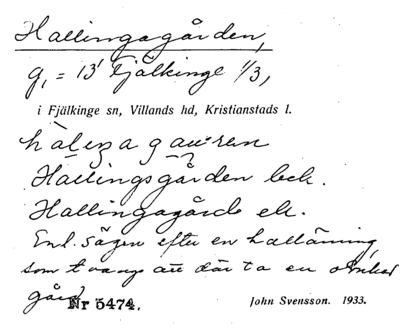 Hallingagården,
g, = 13' Fjälkinge 1/3,
i Fjälkinge sn, Villands hd, Kristianstads l.
Hallingsgården bek.
Hallingagård ek.
Enl. sägen efter en hallänning,
som att där ta en
gård
Nr 5474.
John Svensson. 1933.